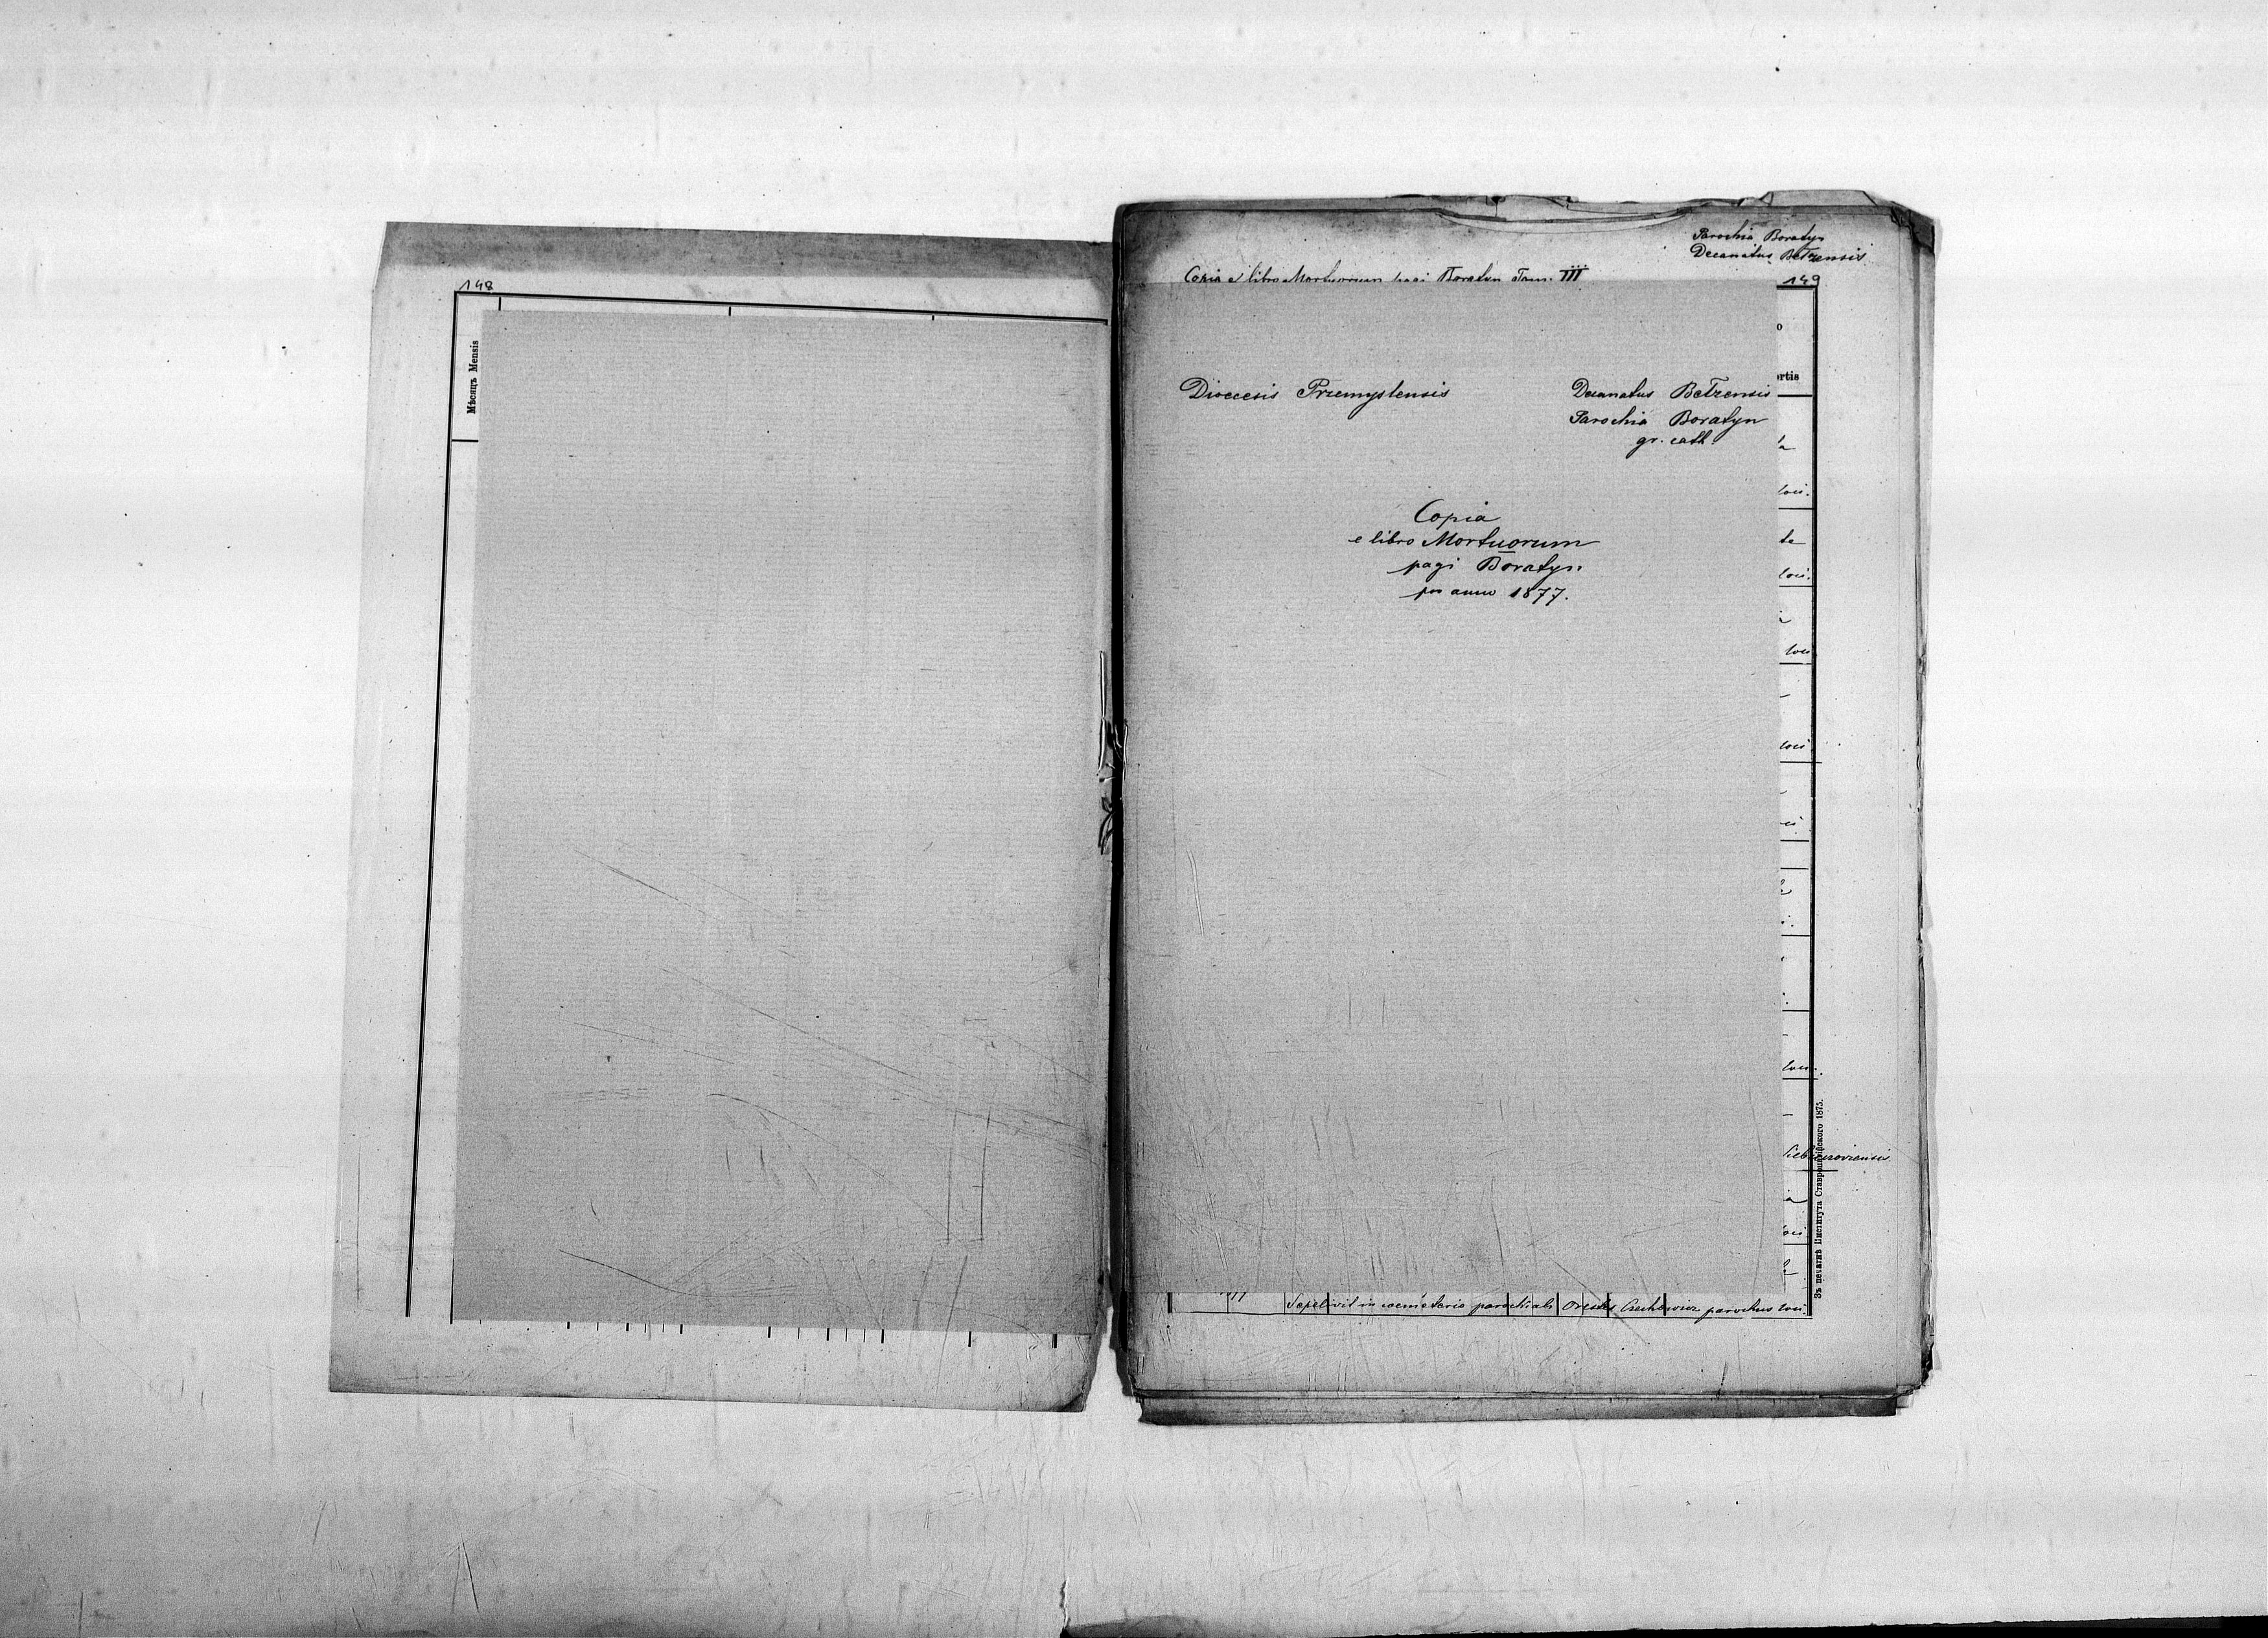 148
Мѣсяцъ Mensis
Parochia Boratyn
Decanatus Bełzensis
Copia e libro Mortuorum pagi Boratyn Tom. III
149
Dioecesis Przemyslensis
Decanatus Bełzensis
Parochia Boratyn
gr. cath.
Copia
e libro Mortuorum
pagi Boratyn
pro anno 1877.
rtis
loci.
loci.
loci
loci
loci.
Sepelivit in coemeterio parochiali Orestes Czechowicz parochus loci.
Зъ печатнѣ Института Ставропигійского 1875.